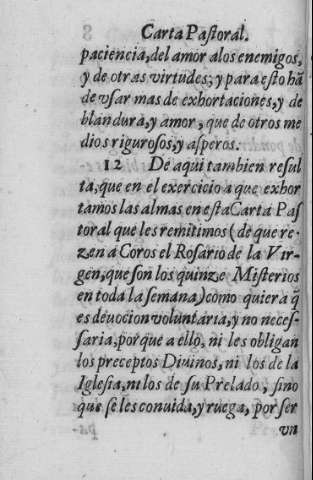 Carta Pastoral.
paciencia, del amor a los enemigos,
y de otras virtudes; y para esto hã
de vsar mas de exhortaciones, y de
blandura, y amor, que de otros me
dios rigurosos, y asperos.
12 De aqui tambien resul
ta, que en el exercicio a que exhor
tamos las almas en esta Carta Pas
toral que les remitimos (de que re-
zen a Coros el Rosario de la Vir-
gen, que son los quinze Misterios
en toda la semana) como quiera q̃
es deuocion voluntaria, y no neces-
saria, porque a ello, ni les obligan
los preceptos Diuinos, ni los de la
Iglesia, ni los de su Prelado; sino
que se les conuida, y ruega, por ser
vn